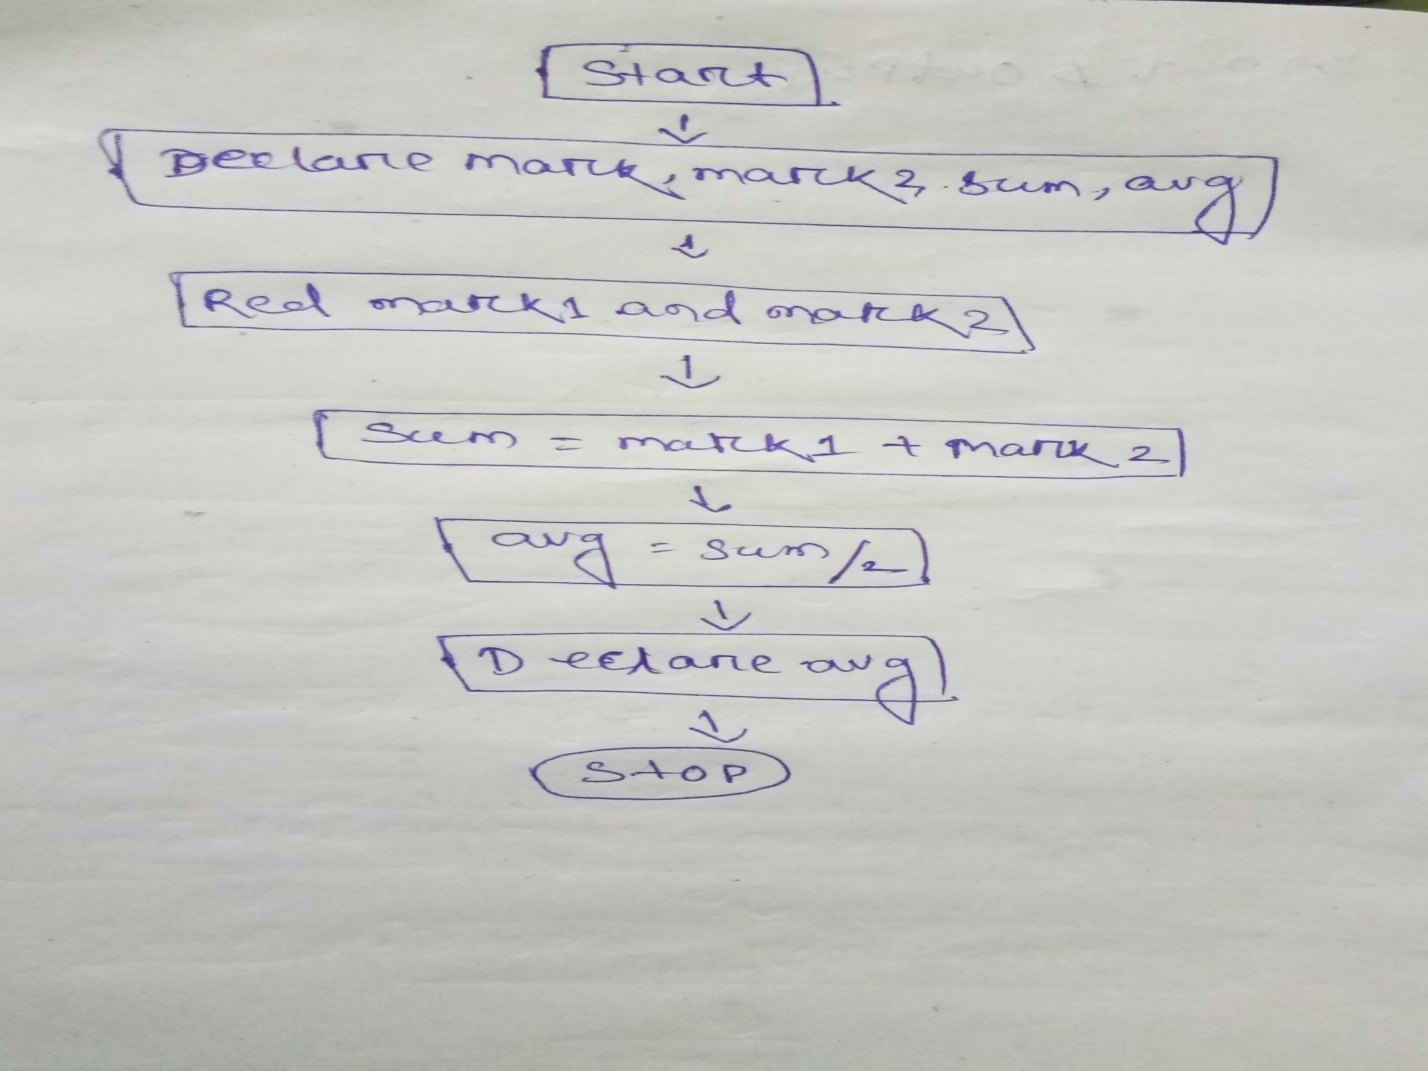 Start
Declare mark, mark2, sum, avg
Red mark1 and mark2
sum = mark1 + mark2
avg = sum/2
Declare avg
Stop